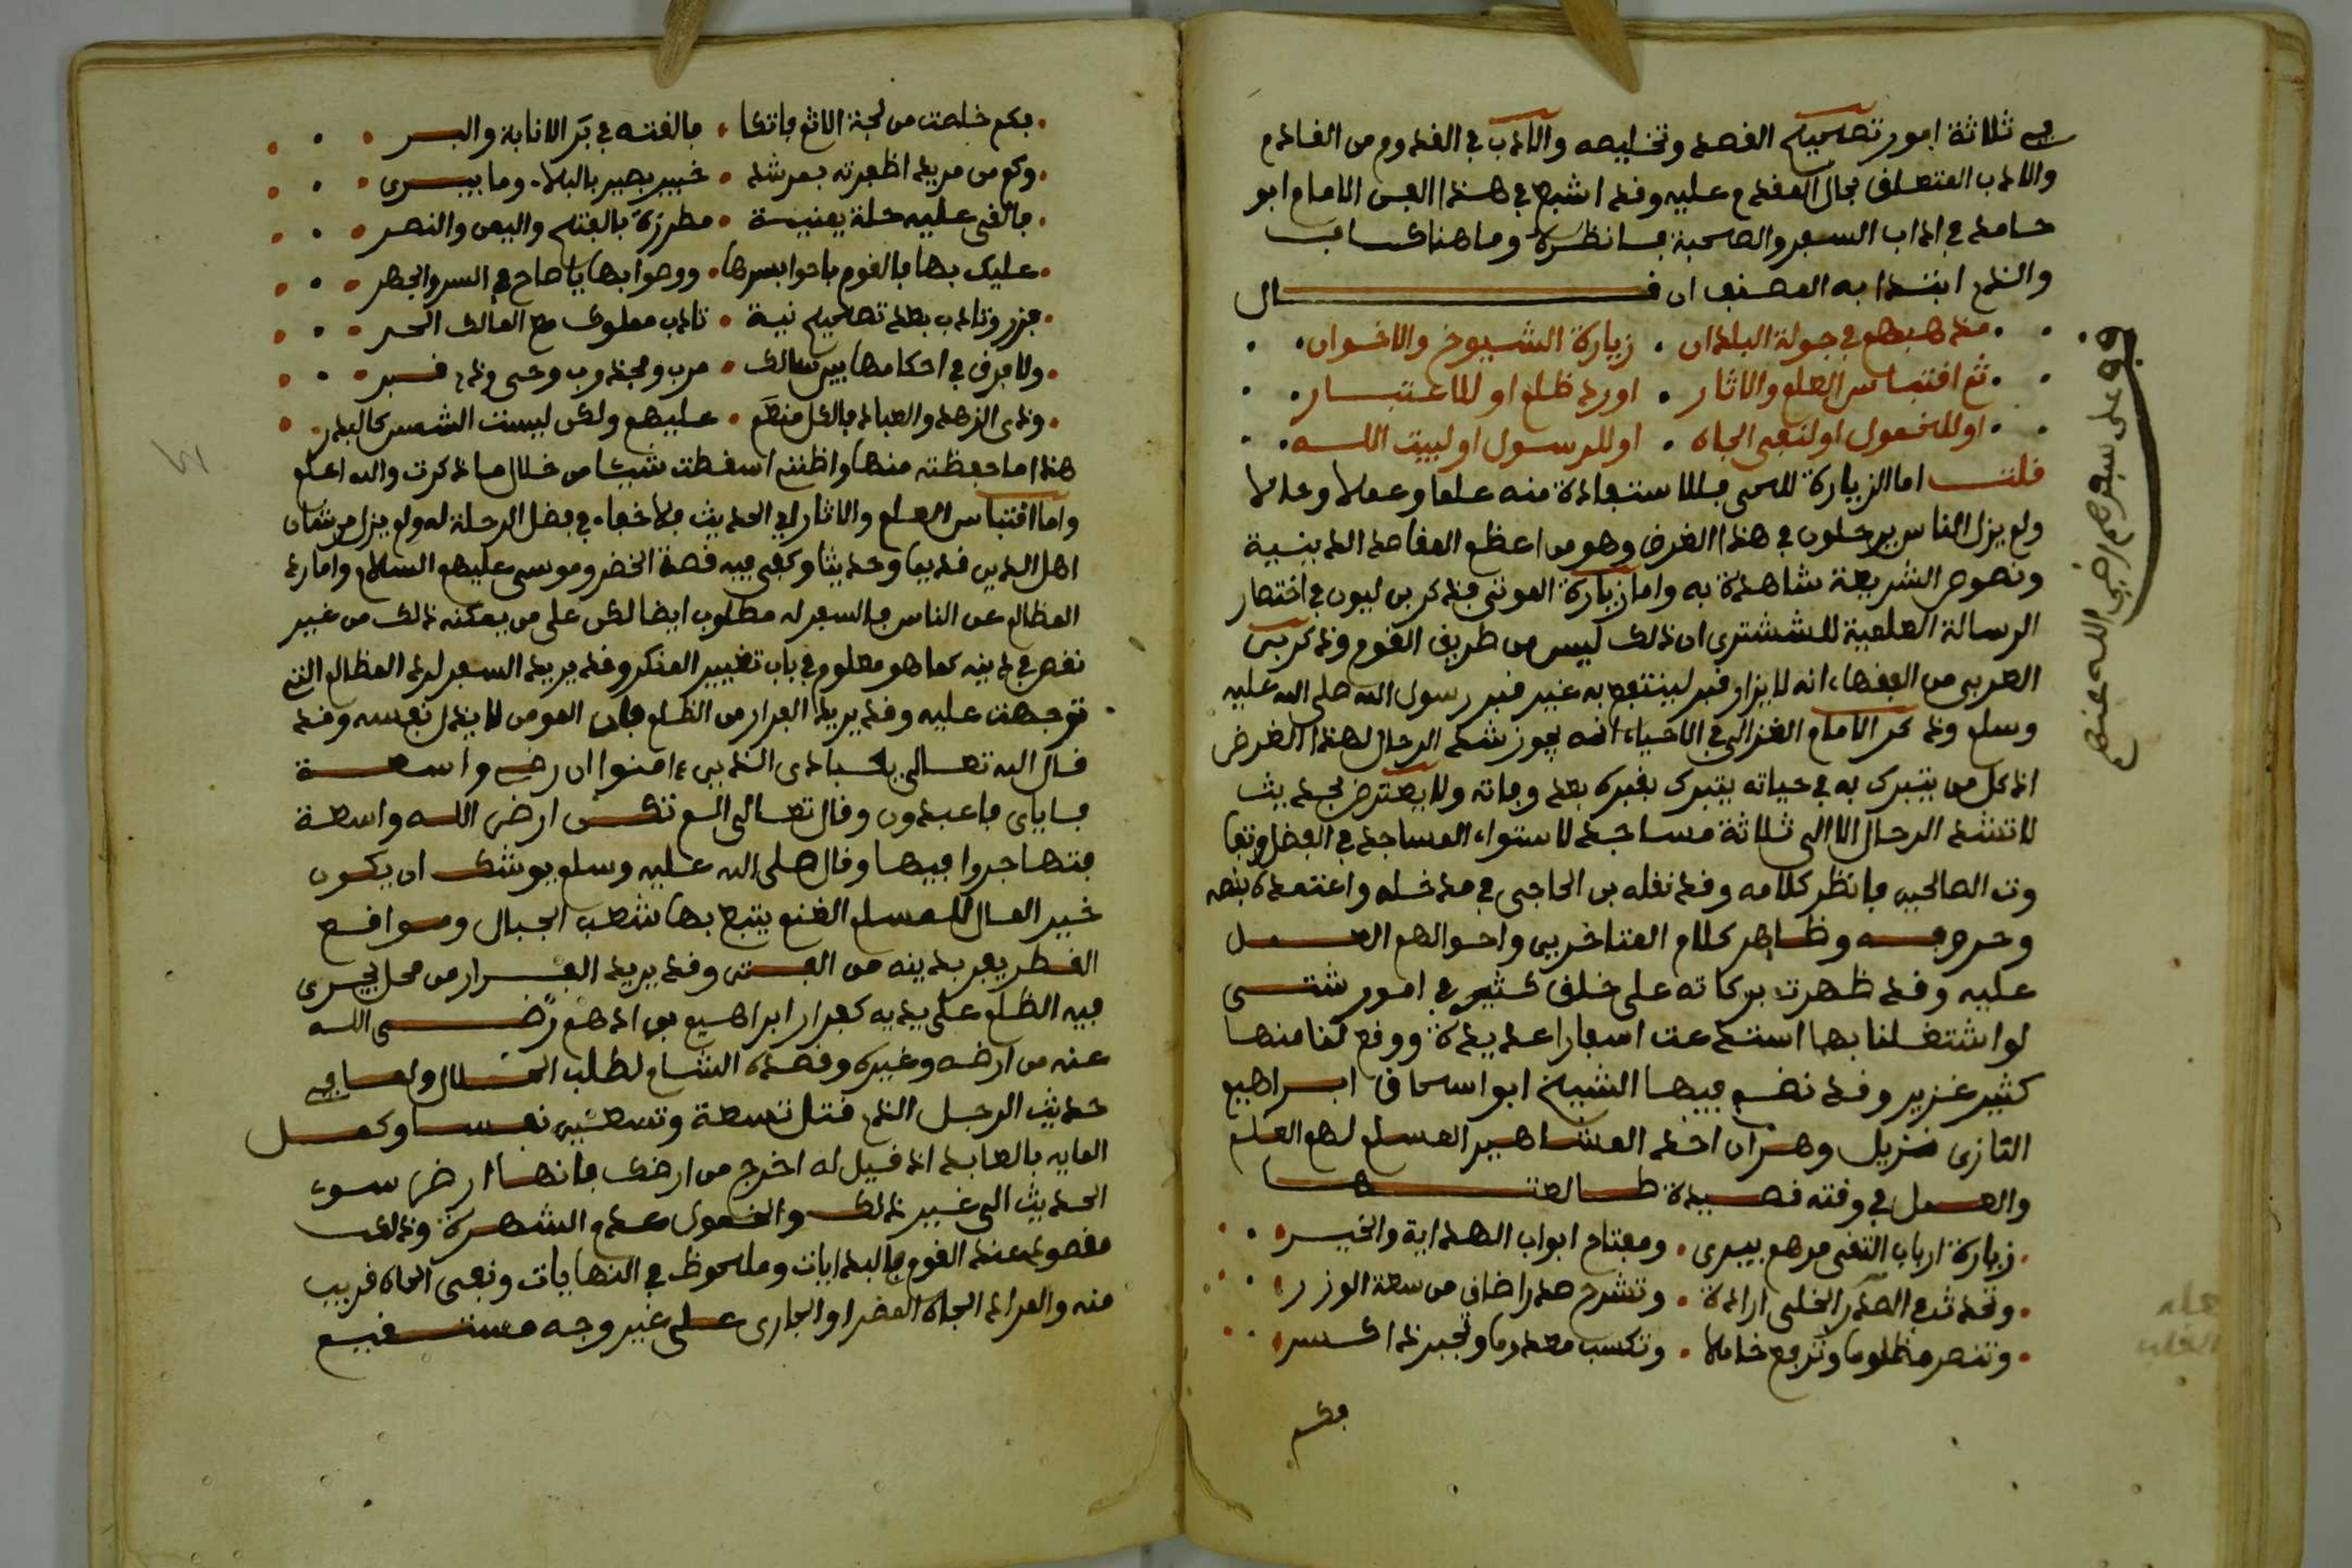 في ثلاثة امور تصحيح القصد وتخليصه والادب في القدوم من القادم
والادب المتعلق بحال المقدم عليه وقد اشبع في هذا الفن الامام ابو
حامد في اداب السفر والصحبة فانظره وما هناك
والذي ابتدا به المصنف ان قال
مذهبهم في جولة البلدان . زيارة الشيوخ والاخوان
ثم اقتباس العلم والاثار . اورد ظلم او للاعتبار
او للخمول او لنفي الجاه . او للرسول او لبيت الله
قلت اما الزيارة للحي فللاستفادة منه علما وعملا وحالا
ولم يزل الناس يرحلون في هذا الغرض وهو من اعظم المقاصد الدينية
ونصوص الشريعة شاهدة به واما زيارة الموتى فذكر بن ليون في اختصار
الرسالة العلمية للششتري ان ذلك ليس من طريق القوم وذكر بن
العربي من الفقهاء انه لا يزار قبر لينتفع به غير قبر رسول الله صلى الله عليه
وسلم وذكر الامام الغزالي في الاحياء انه يجوز شد الرحال لهذا الغرض
اذ كل من يتبرك به في حياته يتبرك بقبره بعد وفاته ولا يعترض بحديث
لا تشد الرحال الا الى ثلاثة مساجد لاستواء المساجد في الفضل وتفا
وت الصالحين فانظر كلامه وقد نقله بن الحاج في مدخله واعتمده بنصه
وحروفه وظاهر كلام المتاخرين واحوالهم العمل
عليه وقد ظهرت بركاته على خلق كثير في امور شتى
لو اشتغلنا بها استدعت اسفارا عديدة ووقع لنا منها
كثير غزير وقد نظم فيها الشيخ ابو اسحاق ابراهيم
التازي نزيل وهران احد المشاهير المسلم لهم العلم
والعمل في وقته قصيدة طالعتها
زيارة ارباب التقى مرهم يبري . ومفتاح ابواب الهداية والخير
وتحدث في الصدر الخلي ارادة . وتشرح صدرا ضاق من سعة الوزر
وتنصر مظلوما وترفع خاملا . وتكسب معدوما وتجبر ذا كسر
فكم
قف على سفرهم رضي الله عنهم
فكم خلصت من لجة الاثم فاتكا . فالقته في بر الانابة والبر
وكم من مريد اظفرته بمرشد . خبير بصير بالبلاء وما يبري
فالقى عليه حلة يمنية . مطرزة بالفتح واليمن والنصر
عليك بها فالقوم باحوا بسرها . ووصوا بها يا صاح في السر والجهر
فزر وتادب بعد تصحيح نية . تادب مملوك مع المالك الحر
ولا فرق في احكامها بين سالك . مرب ومجذوب وحي وذي قبر
وذي الزهد والعباد فالكل منعم . عليهم ولكن ليست الشمس كالبدر
هذا ما حفظته منها واظنني اسقطت شيئا من خلال ما ذكرت والله اعلم
واما اقتباس العلم والاثار اي الحديث فلا خفاء في فضل الرحلة له ولم يزل من شان
اهل الدين قديما وحديثا وكفى فيه قصة الخضر وموسى عليهم السلام واما رد
المظالم عن الناس فالسفر له مطلوب ايضا لكن على من يمكنه ذلك من غير
نقص في دينه كما هو معلوم في باب تغيير المنكر وقد يريد السفر لرد المظالم التي
توجهت عليه وقد يريد الفرار من الظلم فان المومن لا يذل نفسه وقد
قال الله تعالى يعبادي الذين ءامنوا ان رضي واسعة
فاياي فاعبدون وقال تعالى الم تكن ارض الله واسعة
فتهاجروا فيها وقال صلى الله عليه وسلم يوشك ان يكون
خير المال للمسلم الغنم يتبع بها شعب الجبال ومواقع
القطر يفر بدينه من الفتن وقد يريد الفرار من محل يجري
فيه الظلم على يديه كفرار ابراهيم بن ادهم رضي الله
عنه من ارضه وغيره وقصده الشام لطلب الحلال ولما في
حديث الرجل الذي قتل تسعة وتسعين نفسا وكمل
الماية بالعابد اذ قيل له اخرج من ارضك فانها ارض سوء
الحديث الى غير ذلك والخمول عدم الشهرة وذلك
مقصود عند القوم في البدايات وملحوظ في النهايات ونفي الجاه قريب
منه والمراد الجاه المضر او الجاري على غير وجه مستقيم